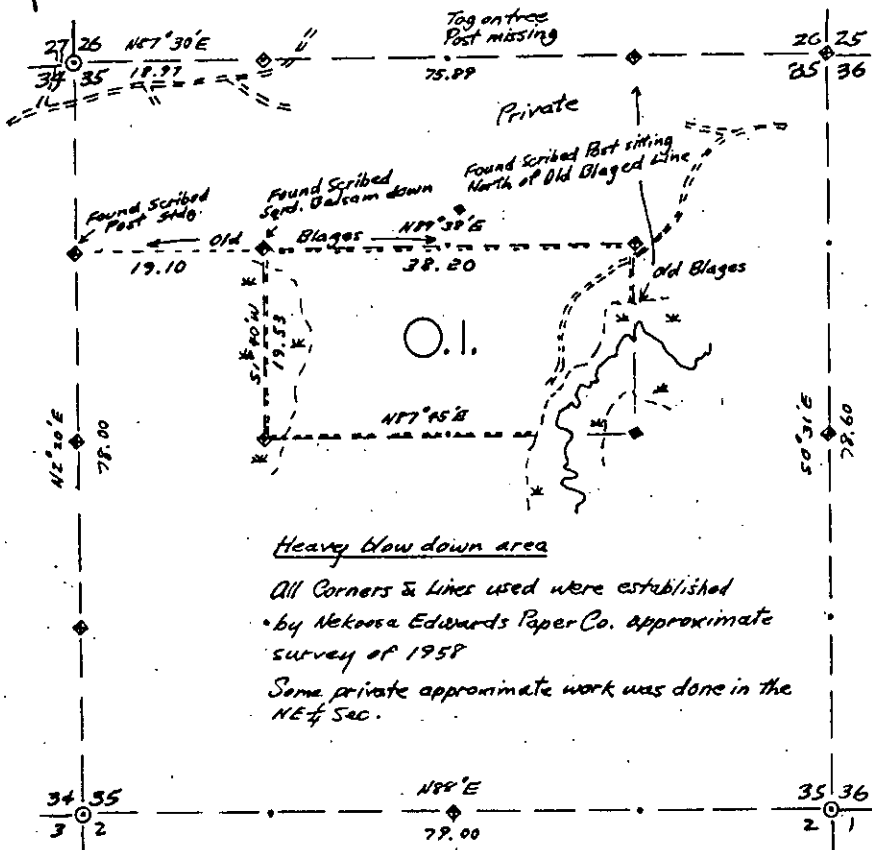 27 26
34 35
N87°30'E
18.97
Tag on tree
Post missing
75.89
26 25
35 36
Private
Found Scribed
Post Stdg.
Found Scribed
Sqrd. Balsam down
Found Scribed Post sitting
North of Old Blaged Line
Old Blages
N89°38'E
19.10
38.20
Old Blages
S1°40'W
19.53
O.I.
N87°45'E
N2°20'E
78.00
S0°31'E
78.60
Heavy blow down area
All Corners & Lines used were established
by Nekoosa Edwards Paper Co. approximate
survey of 1958
Some private approximate work was done in the
NE¼ Sec.
34 35
3 2
N88°E
79.00
35 36
2 1